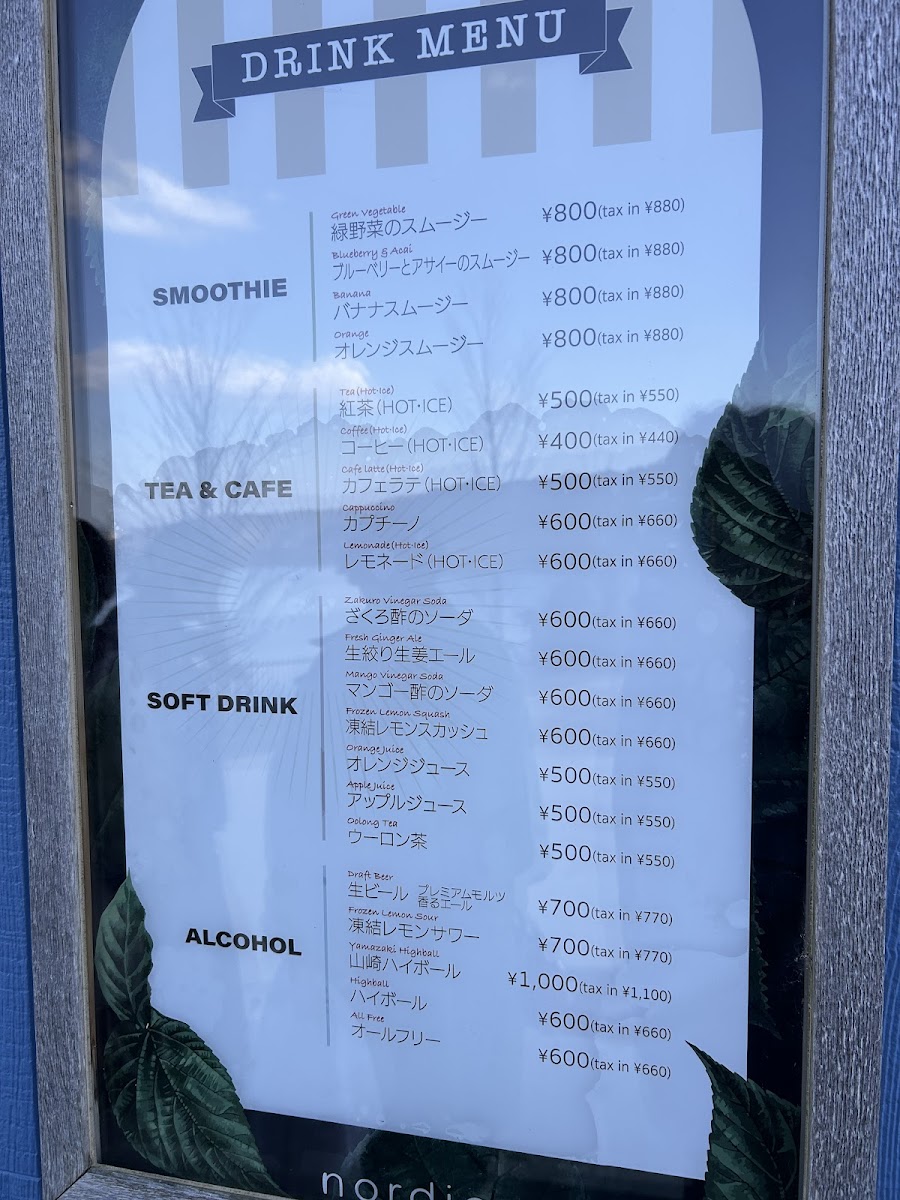 DRINK MENU
SMOOTHIE
Green Vegetable
緑野菜のスムージー ¥800(tax in ¥880)
Blueberry & Acai
ブルーベリーとアサイーのスムージー ¥800(tax in ¥880)
Banana
バナナスムージー ¥800(tax in ¥880)
Orange
オレンジスムージー ¥800(tax in ¥880)
TEA & CAFE
Tea(Hot·Ice)
紅茶(HOT·ICE) ¥500(tax in ¥550)
Coffee(Hot·Ice)
コーヒー(HOT·ICE) ¥400(tax in ¥440)
Cafe latte(Hot·Ice)
カフェラテ(HOT·ICE) ¥500(tax in ¥550)
Cappuccino
カプチーノ ¥600(tax in ¥660)
Lemonade(Hot·Ice)
レモネード(HOT·ICE) ¥600(tax in ¥660)
SOFT DRINK
Zakuro Vinegar Soda
ざくろ酢のソーダ ¥600(tax in ¥660)
Fresh Ginger Ale
生絞り生姜エール ¥600(tax in ¥660)
Mango Vinegar Soda
マンゴー酢のソーダ ¥600(tax in ¥660)
Frozen Lemon Squash
凍結レモンスカッシュ ¥600(tax in ¥660)
Orange Juice
オレンジジュース ¥500(tax in ¥550)
Apple Juice
アップルジュース ¥500(tax in ¥550)
Oolong Tea
ウーロン茶 ¥500(tax in ¥550)
ALCOHOL
Draft Beer
生ビール プレミアムモルツ 香るエール ¥700(tax in ¥770)
Frozen Lemon Sour
凍結レモンサワー ¥700(tax in ¥770)
Yamazaki Highball
山崎ハイボール ¥1,000(tax in ¥1,100)
Highball
ハイボール ¥600(tax in ¥660)
All Free
オールフリー ¥600(tax in ¥660)